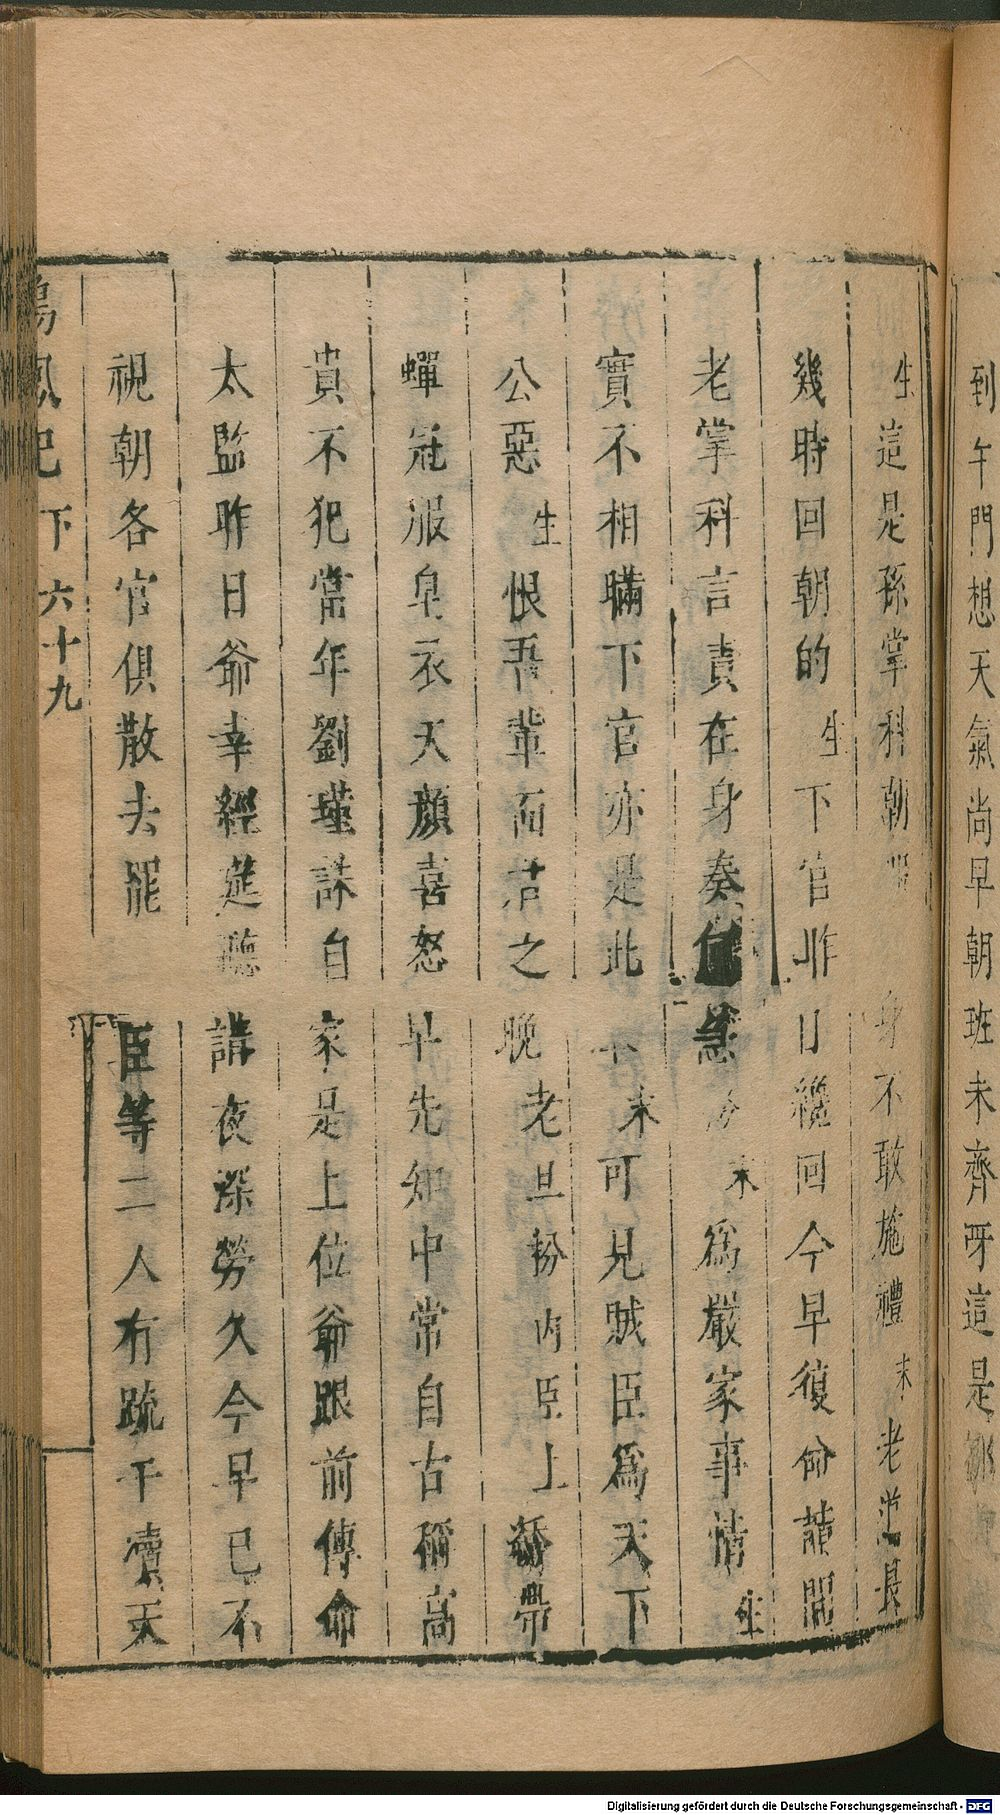 到午門想天氣尚早朝班未齊呀這是
生這是孫掌科朝 身不敢施禮末老道長
幾時回朝的生下官昨日纔回今早復命請問
老掌科言責在身奏 急 末為嚴家事情生
實不相瞞下官亦是此 末可見賊臣為天下
公惡生恨吾輩 之晚老旦扮內臣上
蟬冠服皂衣天顏喜怒早先知中常自古稱高
貴不犯當年劉瑾誅自家是上位爺跟前傳命
太監昨日爺幸經筵聽講夜深勞久今早已不
視朝各官俱散去罷 臣等二人有疏干瀆天
鳴鳳記 下 六十九
Digitalisierung gefördert durch die Deutsche Forschungsgemeinschaft - DFG